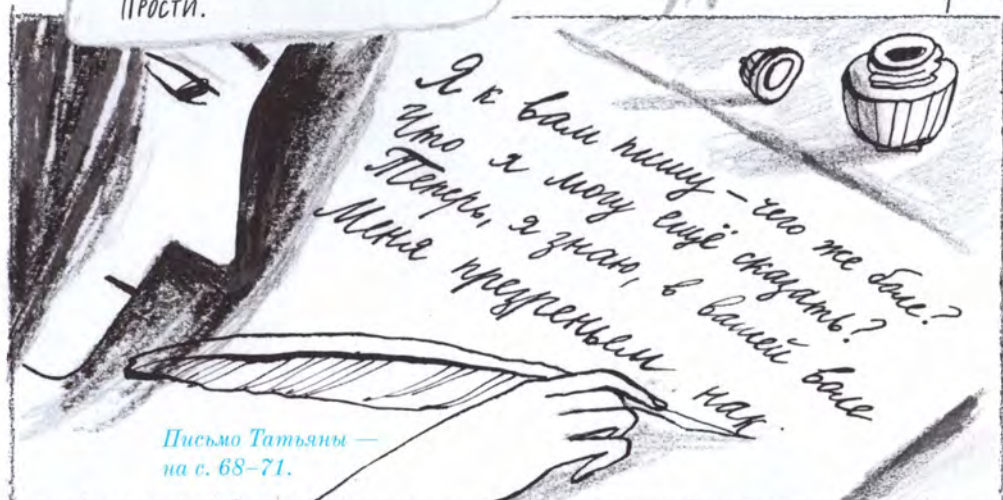 Прости.
Я к вам пишу – чего же боле?
Что я могу ещё сказать?
Теперь, я знаю, в вашей воле
Меня презреньем нак
Письмо Татьяны —
на с. 68–71.